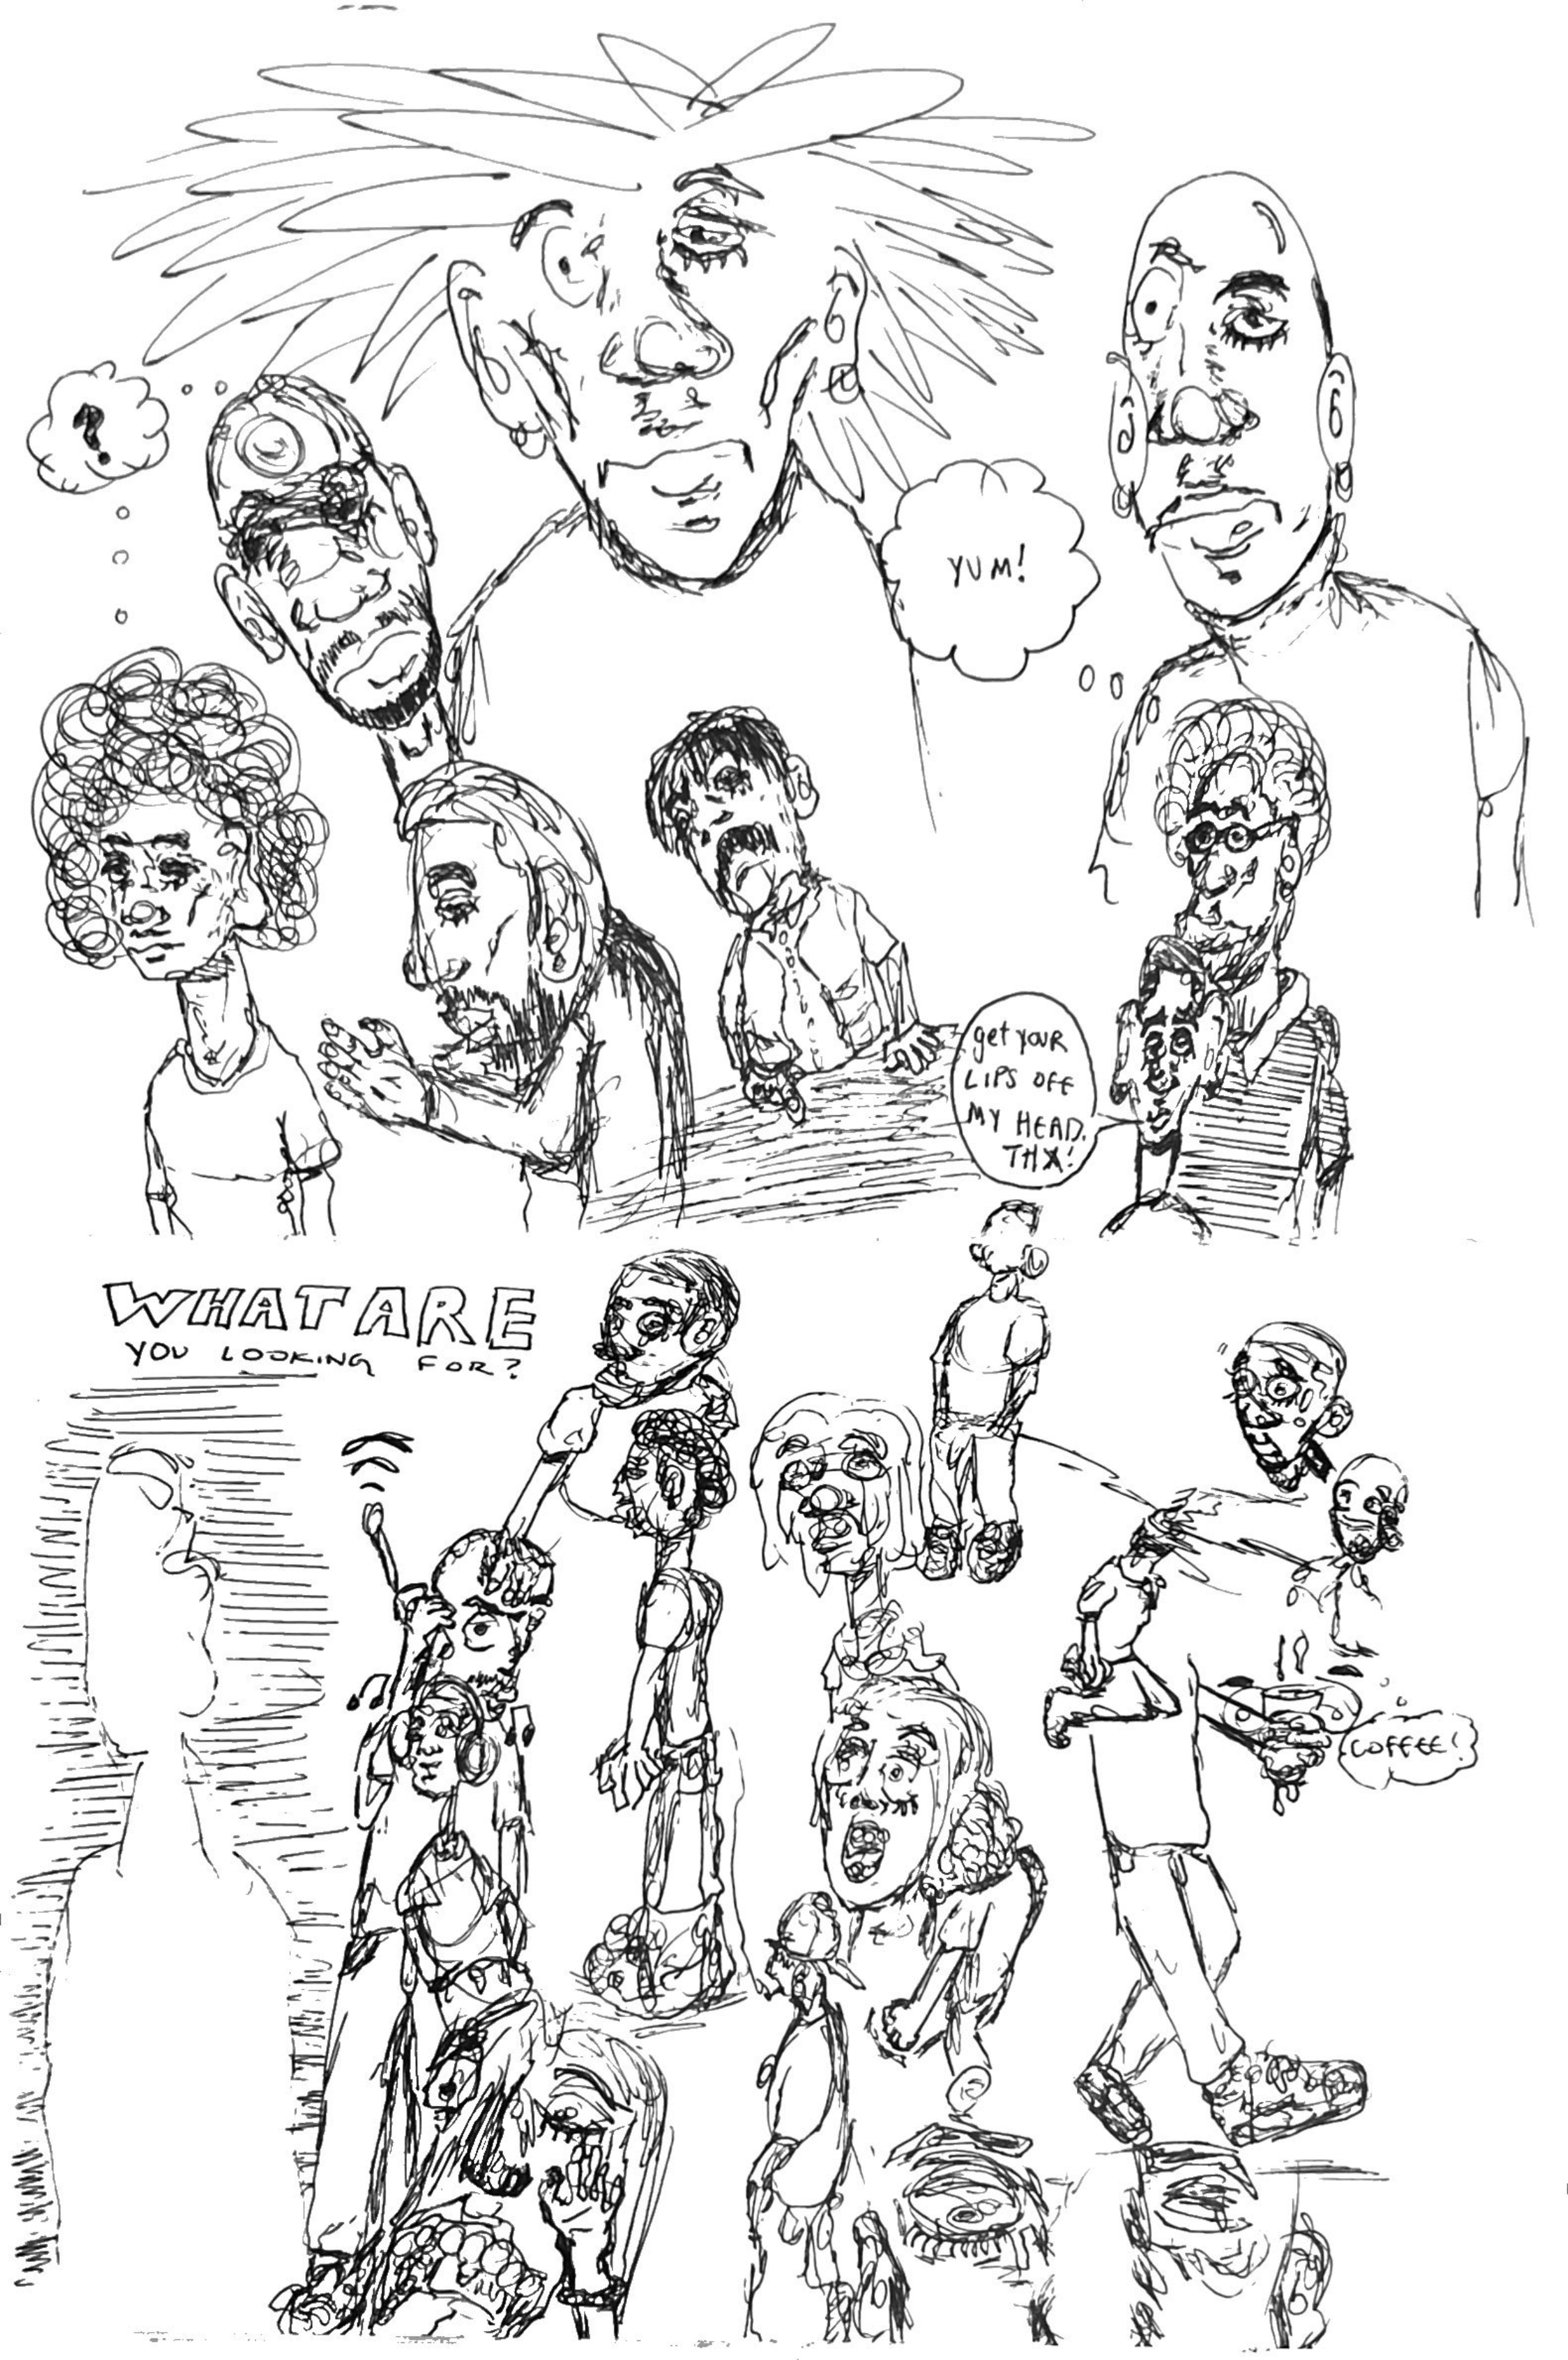 ?
YUM!
get your
LIPS OFF
MY HEAD.
THX!
WHAT ARE
YOU LOOKING FOR?
COFFEE!